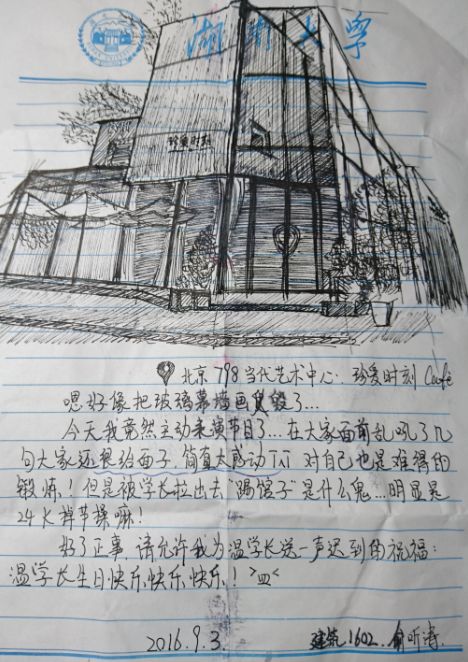 湖南大学
珍爱时刻
北京 798 当代艺术中心. 珍爱时刻 Café
嗯好像把玻璃幕墙画毁了...
今天我竟然主动来演节目了... 在大家面前乱吼了几
句大家还想给面子. 简直太感动TAT 对自己也是难得的
锻炼! 但是被学长拉出去“踢馆子”是什么鬼... 明显是
24K 神节操嘛!
好了正事. 请允许我为温学长送一声迟到的祝福:
温学长生日快乐,快乐,快乐,! >皿<
2016.9.3. 建筑1602. 俞听涛.